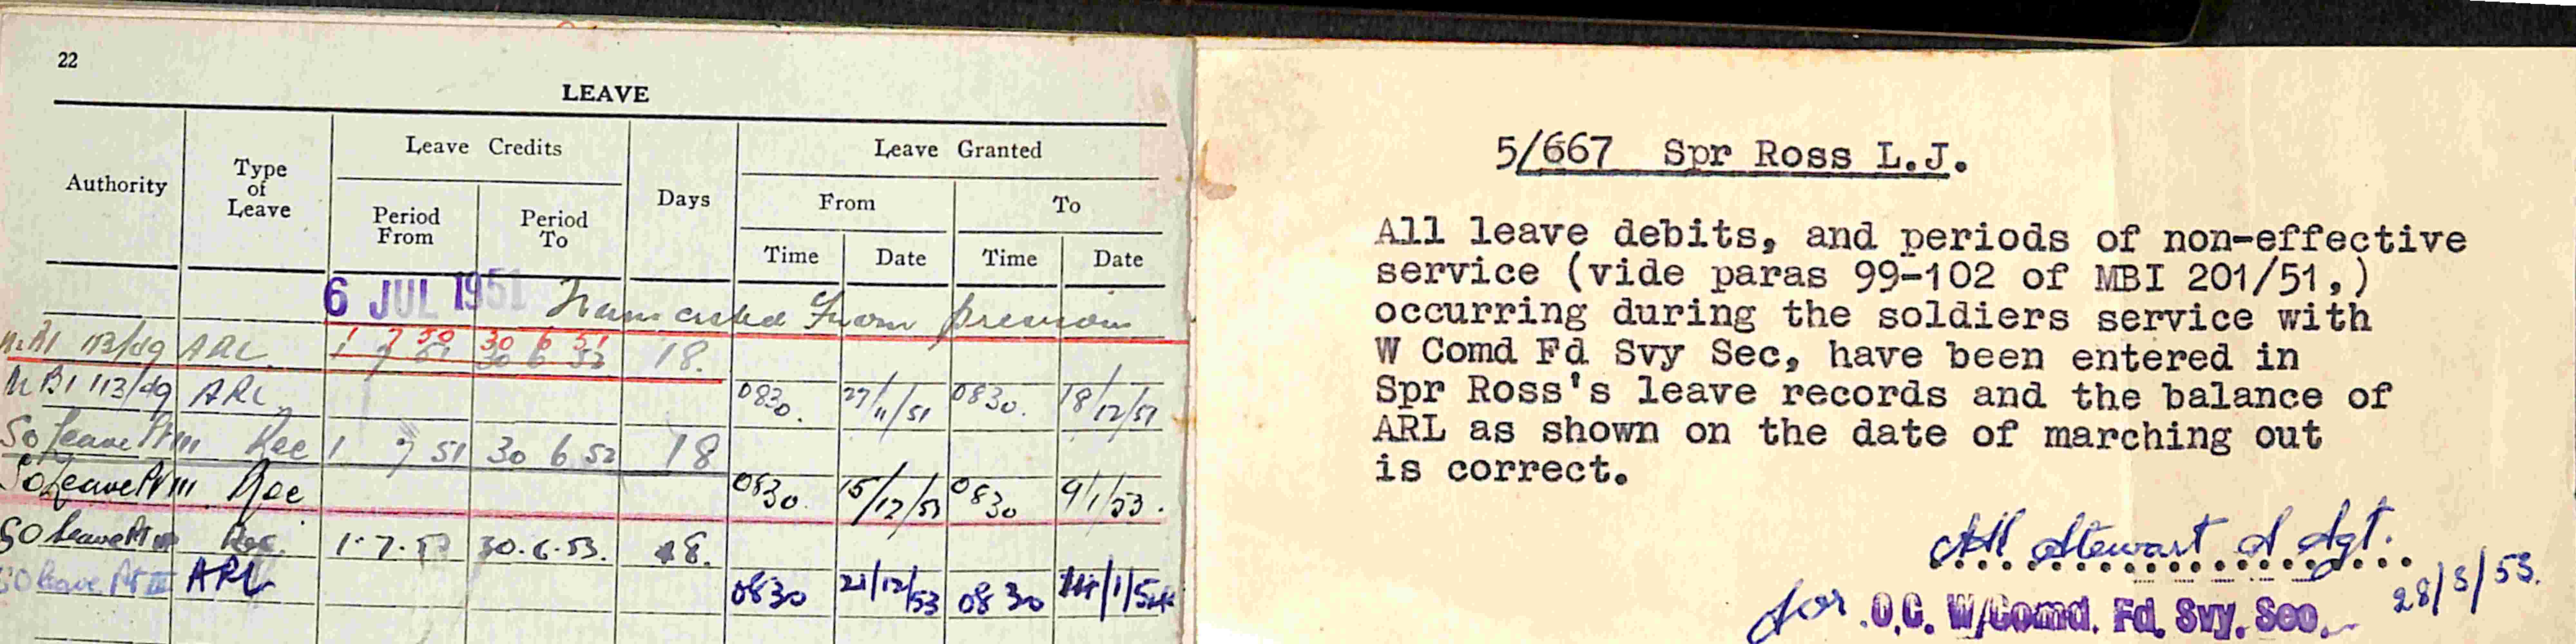 22
LEAVE
Authority
Type
of
Leave
Leave Credits
Period
From
Period
To
Days
Leave Granted
From
To
Time
Date
Time
Date
6 JUL 1951 from previous
113/49 ARL 1 7 50 30 6 51 18.
MBI 113/49 ARL 0830. 27/11/51 0830. 18/12/51
So leave Pt III Rec 1 7 51 30 6 52 18
So leave Pt III Rec 0830. 15/12/52 0830 9/1/53.
SO leave Pt III Rec. 1.7.52 30.6.53. 18.
SO leave Pt III ARL 0830 21/12/53 0830 1/54
5/667 Spr Ross L.J.
All leave debits, and periods of non-effective
service (vide paras 99-102 of MBI 201/51,)
occurring during the soldiers service with
W Comd Fd Svy Sec, have been entered in
Spr Ross's leave records and the balance of
ARL as shown on the date of marching out
is correct.
Stewart S Sgt.
28/3/53.
for O.C. W/Comd. Fd. Svy. Sec.